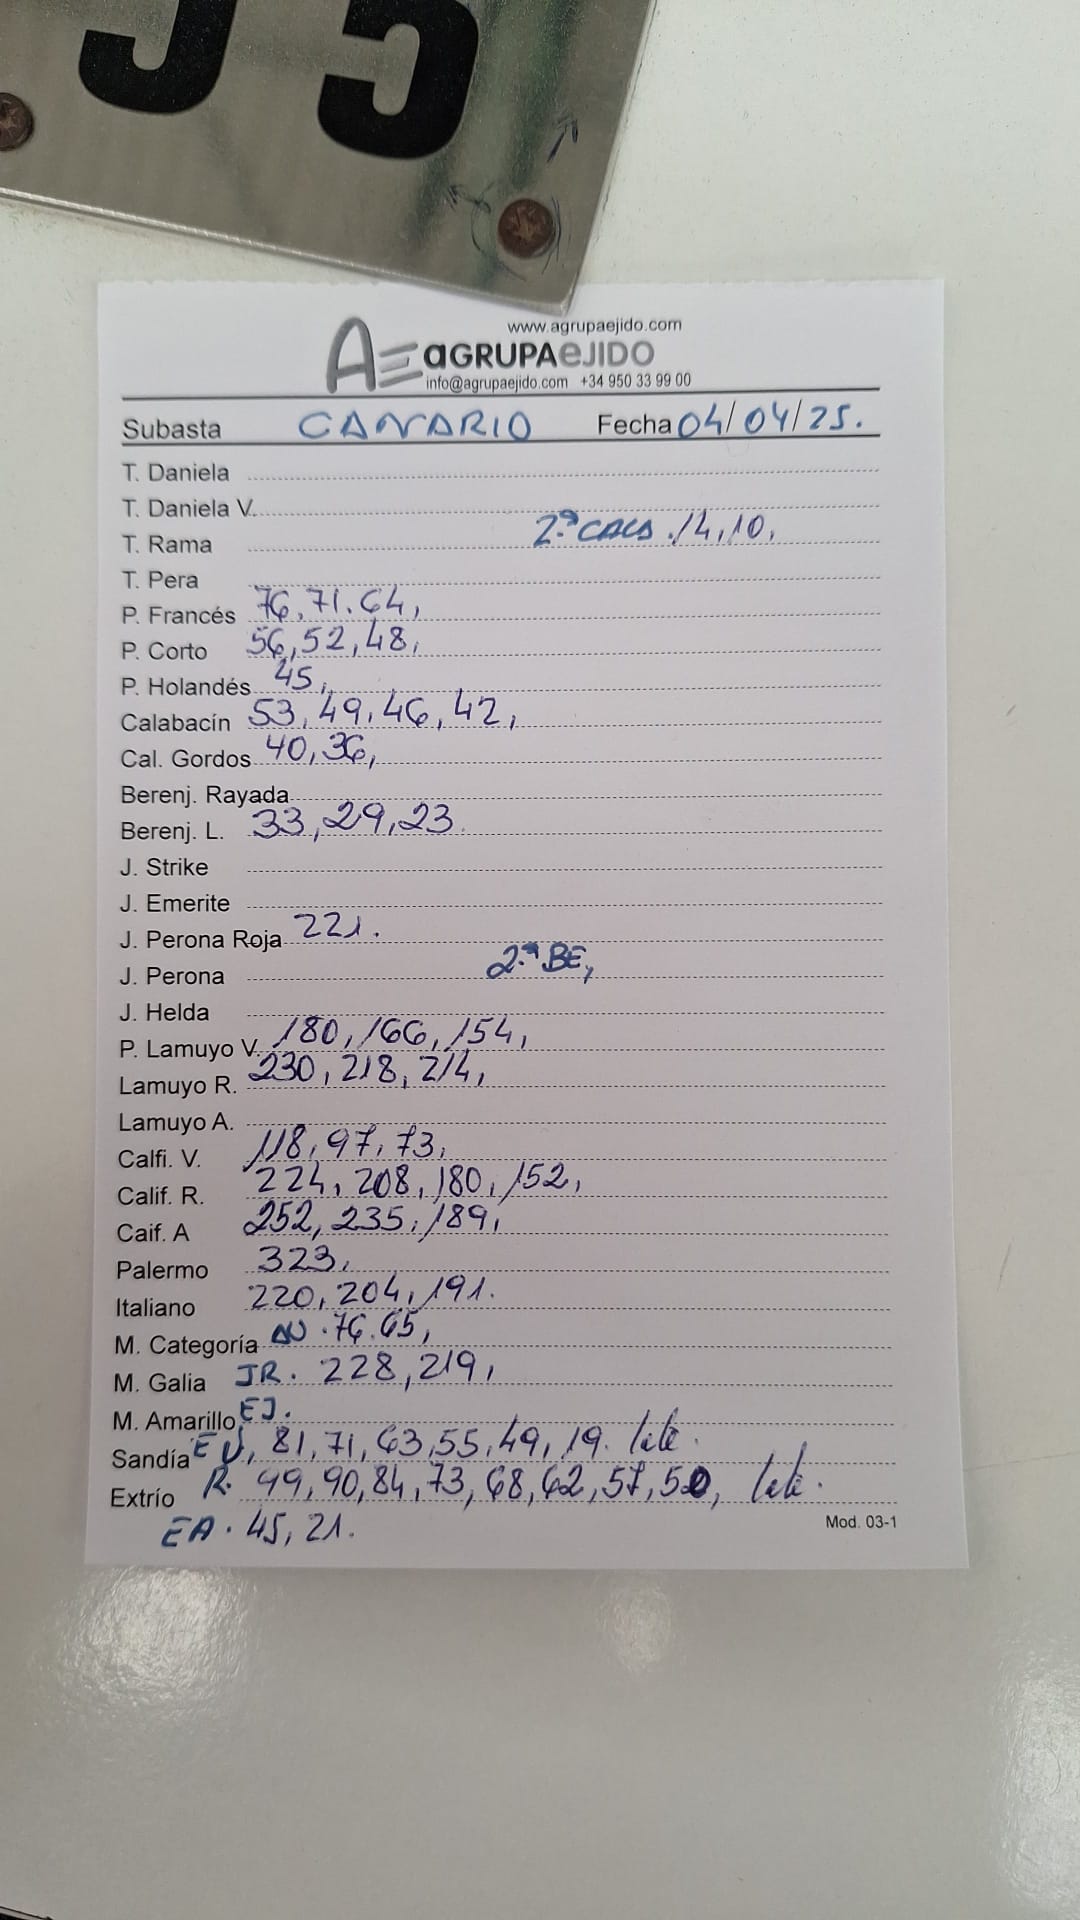 55
www.agrupaejido.com
AE aGRUPAeJIDO
info@agrupaejido.com +34 950 33 99 00
Subasta CANARIO Fecha 04/04/25.
T. Daniela
T. Daniela V.
T. Rama 2.ª CALS. 14, 10,
T. Pera
P. Francés 76, 71. 64,
P. Corto 56, 52, 48,
P. Holandés 45,
Calabacín 53, 49, 46, 42,
Cal. Gordos 40, 36,
Berenj. Rayada
Berenj. L. 33, 29, 23
J. Strike
J. Emerite
J. Perona Roja 221.
J. Perona 2.ª BE,
J. Helda
P. Lamuyo V. 180, 166, 154,
Lamuyo R. 230, 218, 214,
Lamuyo A.
Calfi. V. 118, 97, 73,
Calif. R. 224, 208, 180, 152,
Caif. A 252, 235, 189,
Palermo 323,
Italiano 220, 204, 191.
M. Categoría AU. 76. 65,
M. Galia JR. 228, 219,
M. Amarillo EJ.
Sandía EV, 81, 71, 63, 55, 49, 19.
Extrío R. 99, 90, 84, 73, 68, 62, 57, 50,
EA. 45, 21.
Mod. 03-1